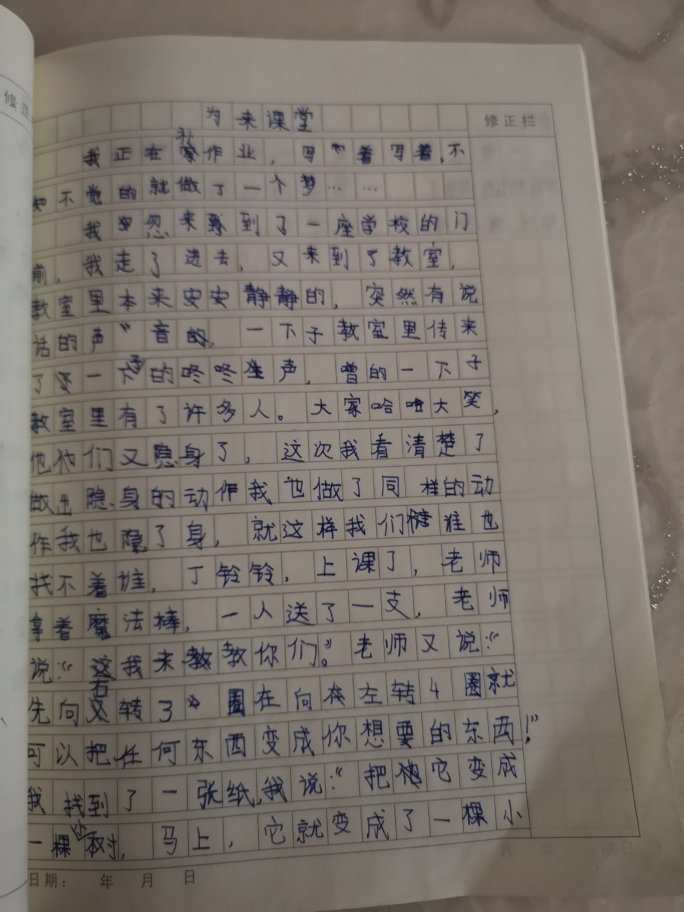 修正
为来课堂
修正栏
我正在补作业，写着写着，不
知不觉的就做了一个梦……
我忽来到了一座学校的门
前，我走了进去，又来到了教室，
教室里本来安安静静的，突然有说
话的声音的，一下子教室里传来
了一下子的咚咚声，噌的一下子
教室里有了许多人。大家哈哈大笑，
他他们又隐身了，这次我看清楚了
做出隐身的动作我也做了同样的动
作我也隐了身，就这样我们谁也
找不着谁，丁铃铃，上课了，老师
拿着魔法棒，一人送了一支，老师
说：“这我来教教你们。”老师又说：“
先向右转3圈在向左转4圈就
可以把任何东西变成你想要的东西！”
我找到了一张纸，我说：“把它变成
一棵小树，马上，它就变成了一棵小
日期： 年 月 日